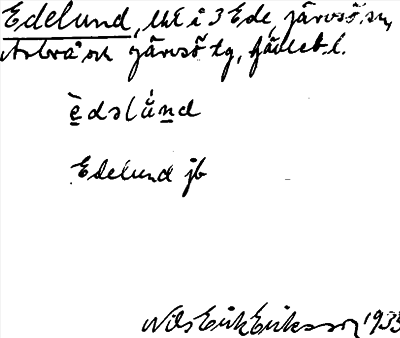 Edelund, lht i 3 Ede, Järvsö sn,
Arbrå och Järvsö tg, Gävleb. l.
èdslu̇nd
Edelund jb
Nils Erik Eriksson 1935